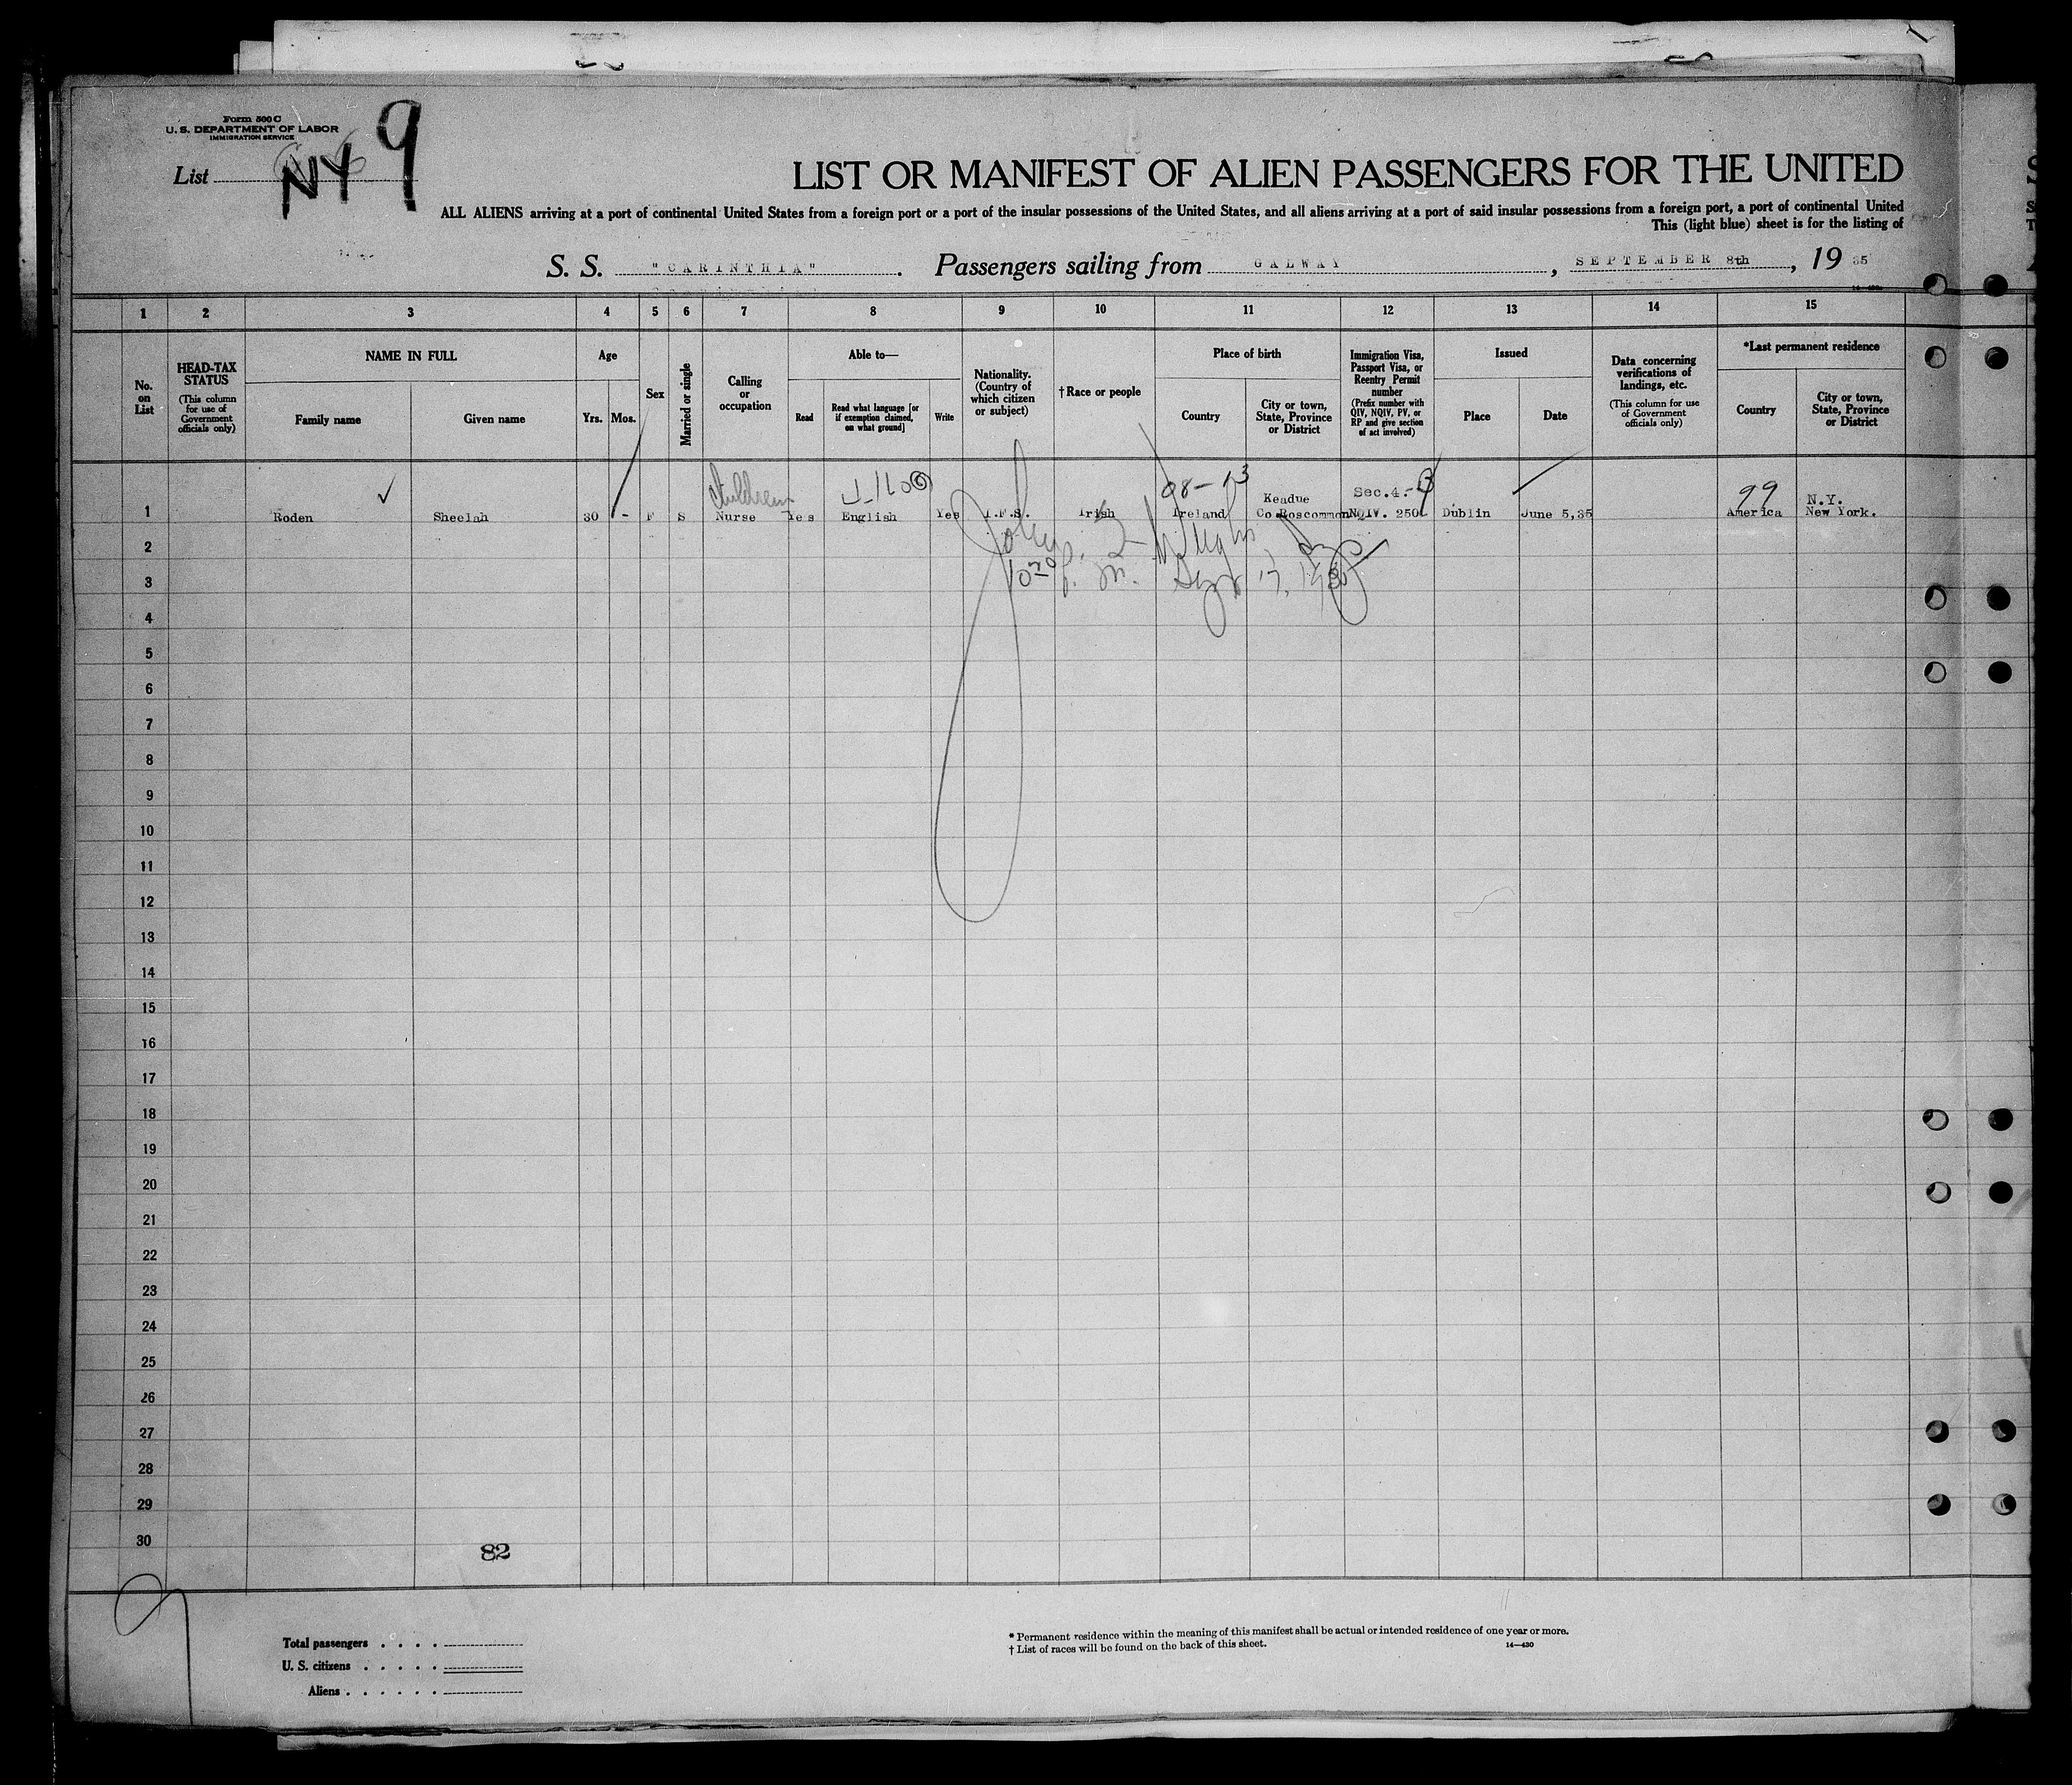 Form 500 C
U. S. DEPARTMENT OF LABOR
IMMIGRATION SERVICE
List NY 9
LIST OR MANIFEST OF ALIEN PASSENGERS FOR THE UNITED
ALL ALIENS arriving at a port of continental United States from a foreign port or a port of the insular possessions of the United States, and all aliens arriving at a port of said insular possessions from a foreign port, a port of continental United
This (light blue) sheet is for the listing of
S. S. "CARINTHIA". Passengers sailing from GALWAY, SEPTEMBER 8th, 19 35
1 2 3 4 5 6 7 8 9 10 11 12 13 14 15
No. on List
HEAD-TAX STATUS
(This column for use of Government officials only)
NAME IN FULL
Family name
Given name
Age
Yrs.
Mos.
Sex
Married or single
Calling or occupation
Able to—
Read
Read what language [or if exemption claimed, on what ground]
Write
Nationality. (Country of which citizen or subject)
† Race or people
Place of birth
Country
City or town, State, Province or District
Immigration Visa, Passport Visa, or Reentry Permit number
(Prefix number with QIV, NQIV, PV, or RP and give section of act involved)
Issued
Place
Date
Data concerning verifications of landings, etc.
(This column for use of Government officials only)
*Last permanent residence
Country
City or town, State, Province or District
Children Keadue Sec.4.- 99 N.Y.
1 Roden Sheelah 30 - F S Nurse Yes English Yes I.F.S. Irish Ireland Co Roscommon NQIV. 250 Dublin June 5,35 America New York.
2
3
4
5
6
7
8
9
10
11
12
13
14
15
16
17
18
19
20
21
22
23
24
25
26
27
28
29
30
82
Total passengers . . . .
U. S. citizens . . . . .
Aliens . . . . . .
* Permanent residence within the meaning of this manifest shall be actual or intended residence of one year or more.
† List of races will be found on the back of this sheet.
14—430